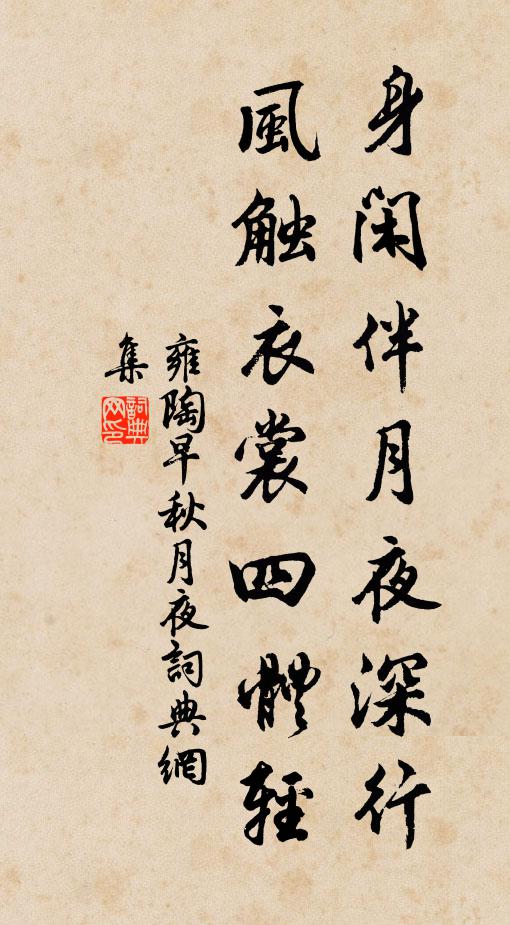 身闲伴月夜深行
風触衣裳四體輕
雍陶早秋月夜詞典網
集
詞典网印